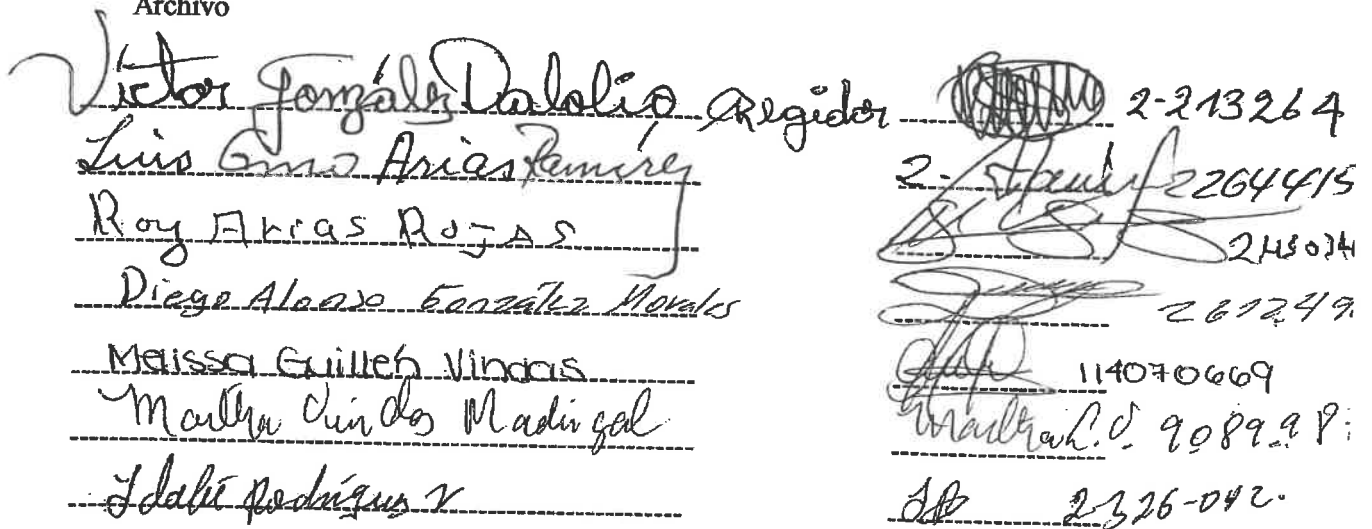 Archivo
Victor González Dalolio Regidor 2-213264
Luis Arias Ramírez 2- 2264415
Roy Arias Rojas
Diego Alonso González Morales 267249
Melissa Guillén Vindas 114070669
Martha Vindas Madrigal 908998
Idalie Rodríguez V 2-326-042.